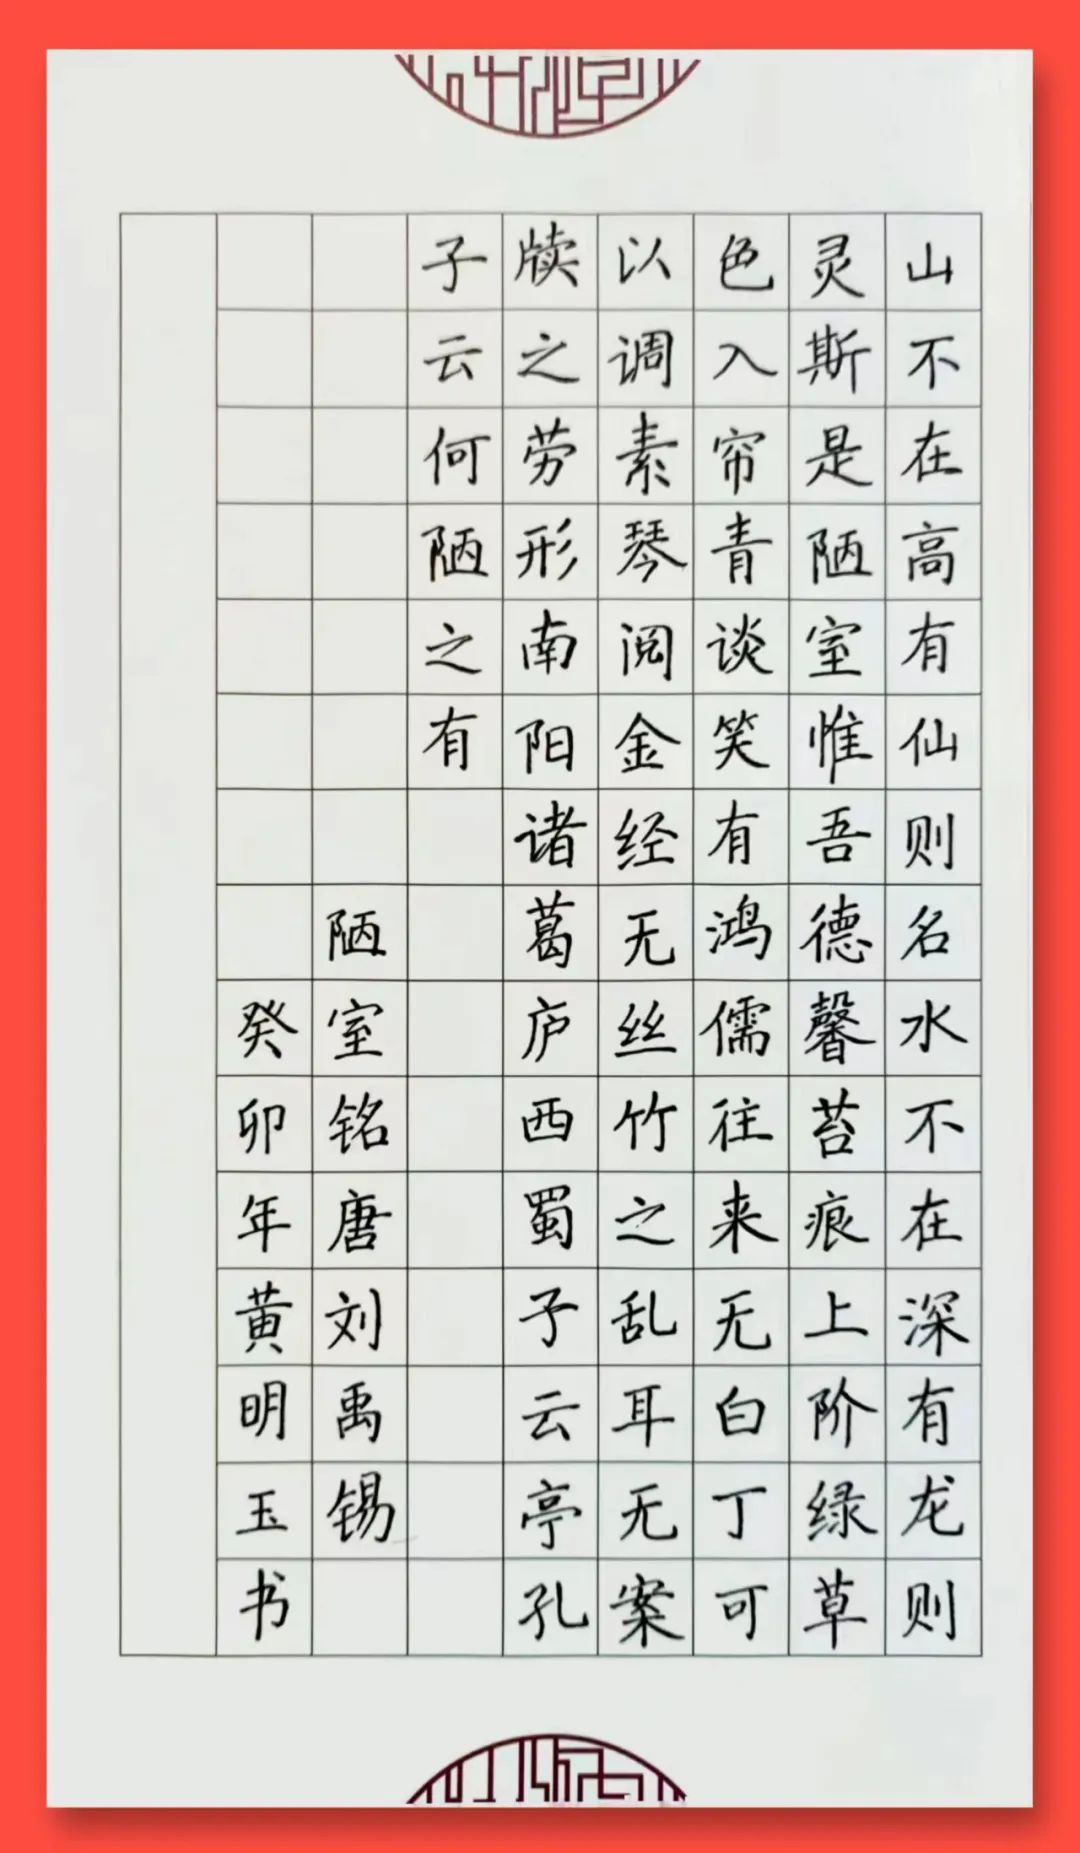 山不在高有仙则名水不在深有龙则
灵斯是陋室惟吾德馨苔痕上阶绿草
色入帘青谈笑有鸿儒往来无白丁可
以调素琴阅金经无丝竹之乱耳无案
牍之劳形南阳诸葛庐西蜀子云亭孔
子云何陋之有
陋室铭唐刘禹锡
癸卯年黄明玉书